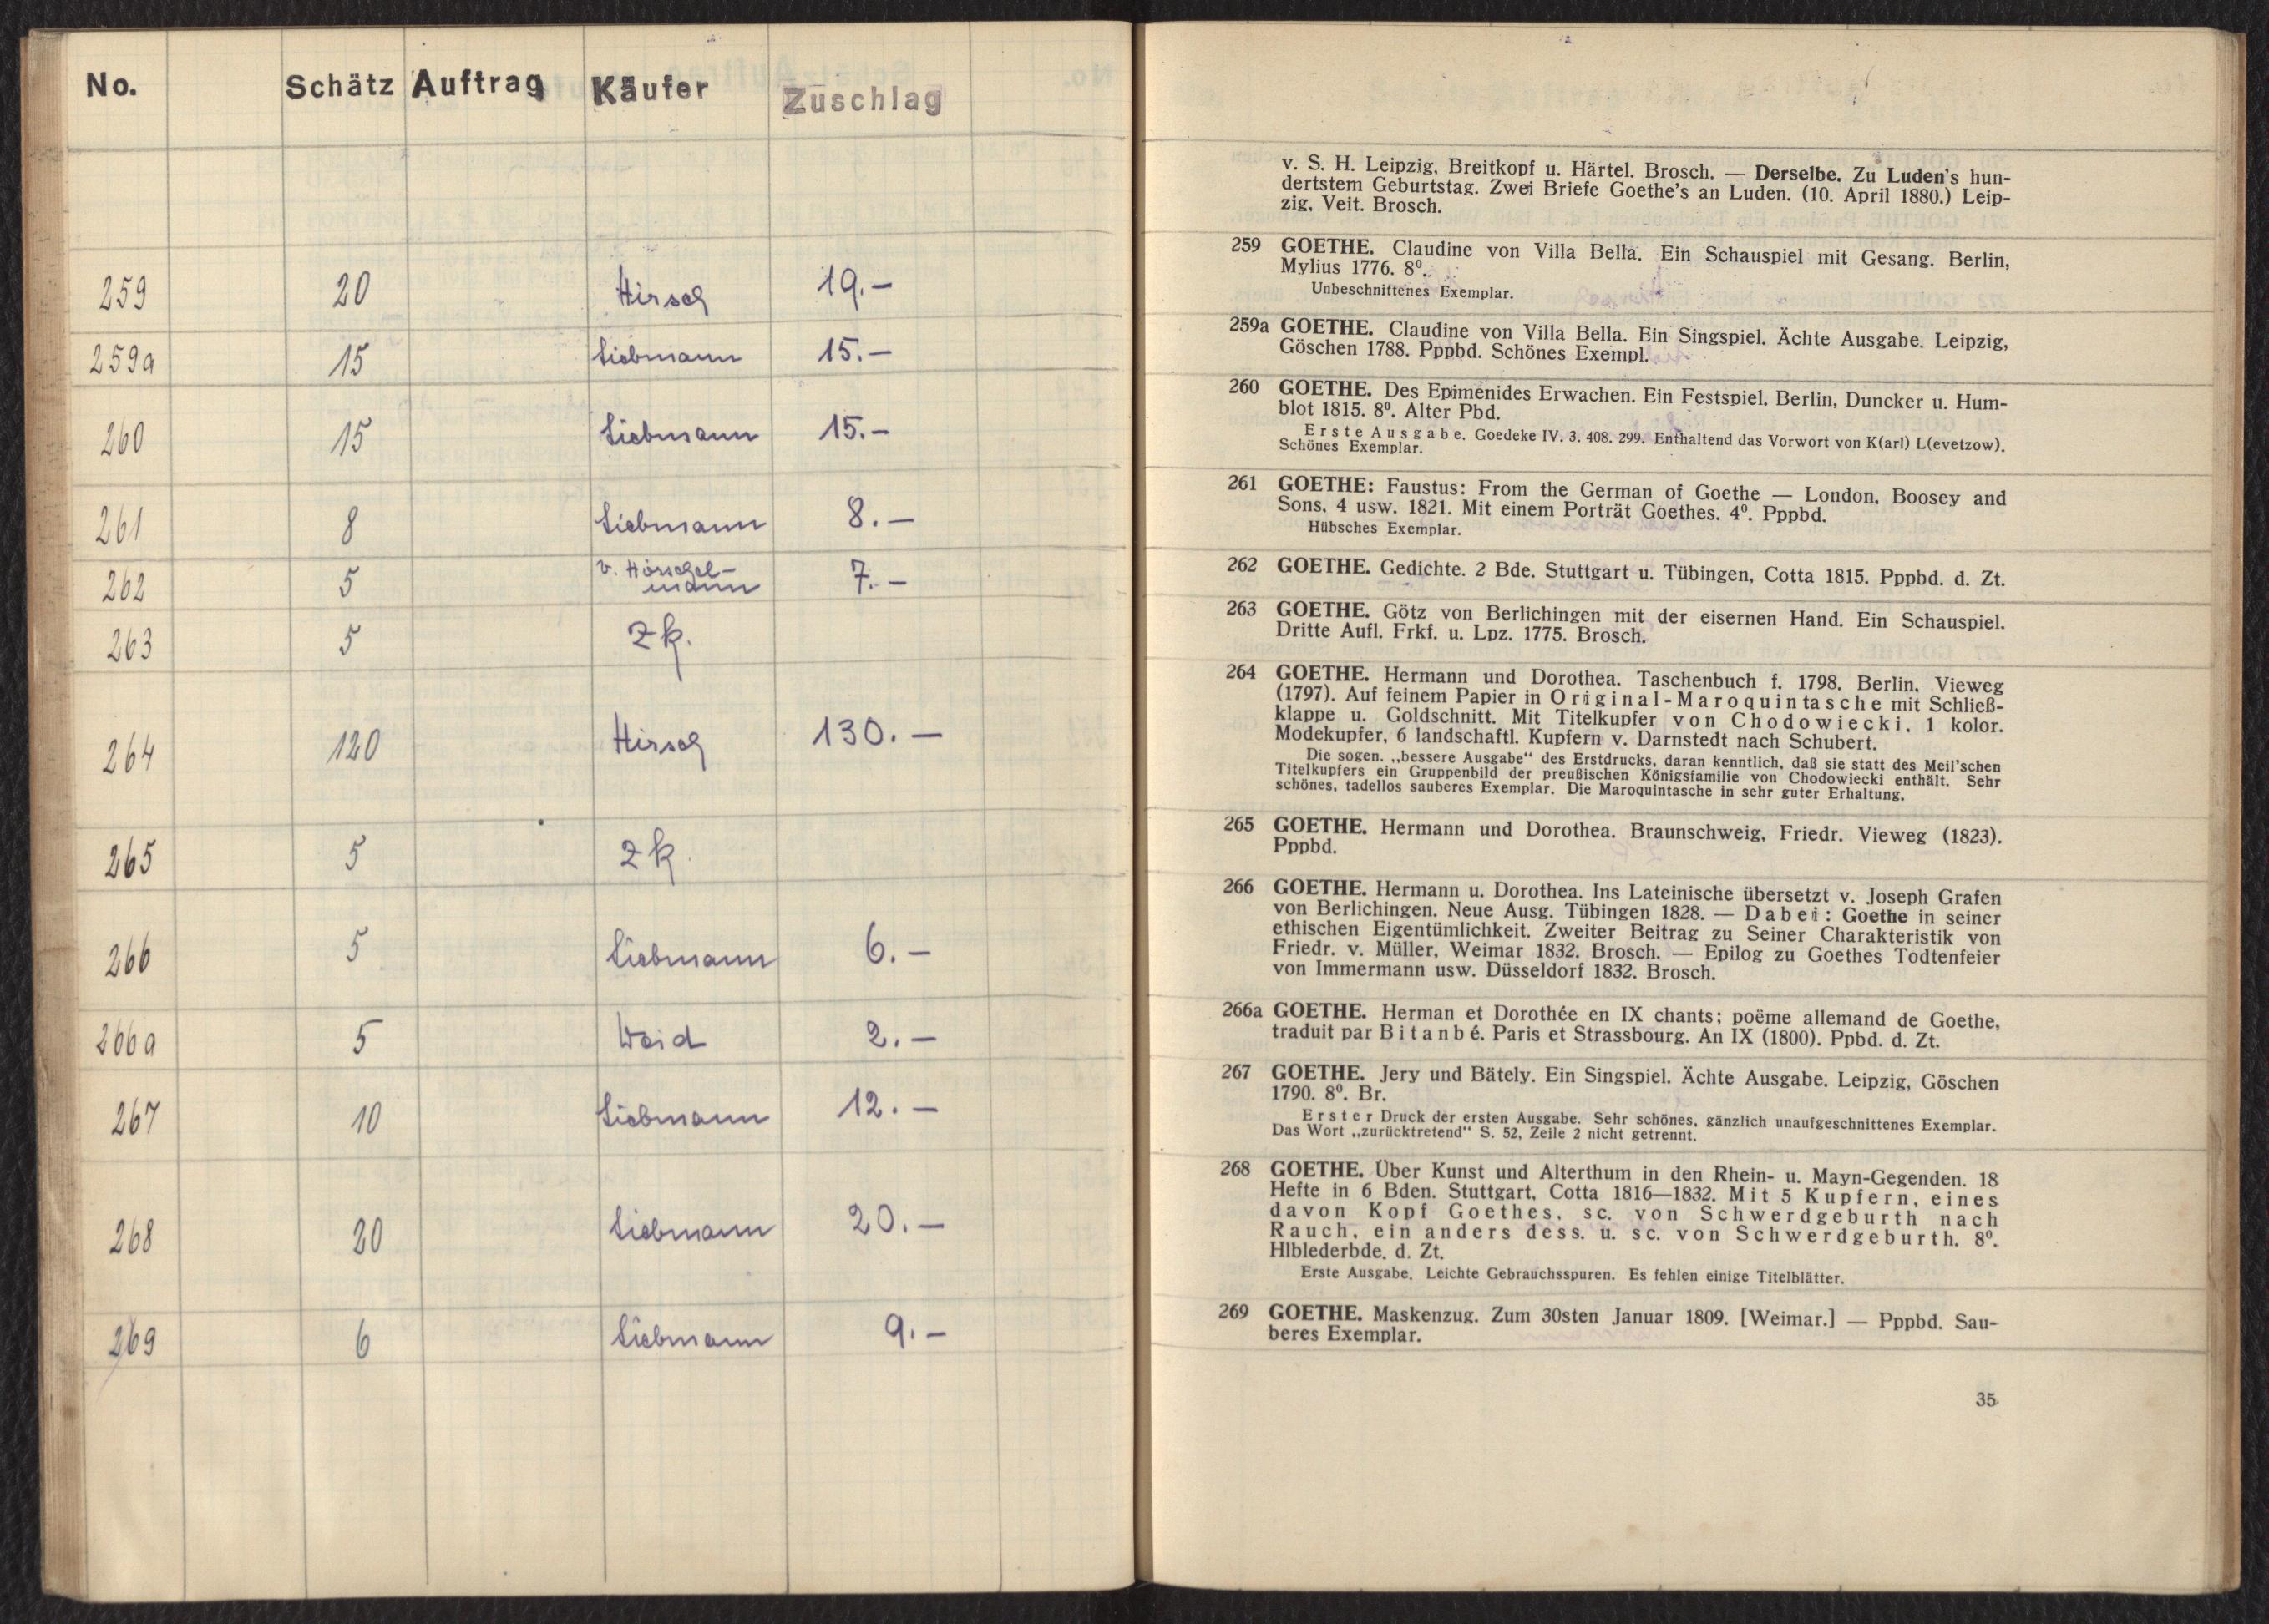 No. Schätz Auftrag Käufer Zuschlag
259 20 Hirsch 19.—
259a 15 Liebmann 15.—
260 15 Liebmann 15.—
261 8 Liebmann 8.—
262 5 v. Hörschel-
mann 7.—
263 5 zk.
264 120 Hirsch 130.—
265 5 zk.
266 5 Liebmann 6.—
266a 5 Weid 2.—
267 10 Liebmann 12.—
268 20 Liebmann 20.—
269 6 Liebmann 9.—
v. S. H. Leipzig, Breitkopf u. Härtel. Brosch. — Derselbe. Zu Luden's hun-
dertstem Geburtstag. Zwei Briefe Goethe's an Luden. (10. April 1880.) Leip-
zig, Veit. Brosch.
259 GOETHE. Claudine von Villa Bella. Ein Schauspiel mit Gesang. Berlin,
Mylius 1776. 8⁰.
Unbeschnittenes Exemplar.
259a GOETHE. Claudine von Villa Bella. Ein Singspiel. Ächte Ausgabe. Leipzig,
Göschen 1788. Pppbd. Schönes Exempl.
260 GOETHE. Des Epimenides Erwachen. Ein Festspiel. Berlin, Duncker u. Hum-
blot 1815. 8⁰. Alter Pbd.
Erste Ausgabe. Goedeke IV. 3. 408. 299. Enthaltend das Vorwort von K(arl) L(evetzow).
Schönes Exemplar.
261 GOETHE: Faustus: From the German of Goethe — London, Boosey and
Sons, 4 usw. 1821. Mit einem Porträt Goethes. 4⁰. Pppbd.
Hübsches Exemplar.
262 GOETHE. Gedichte. 2 Bde. Stuttgart u. Tübingen, Cotta 1815. Pppbd. d. Zt.
263 GOETHE. Götz von Berlichingen mit der eisernen Hand. Ein Schauspiel.
Dritte Aufl. Frkf. u. Lpz. 1775. Brosch.
264 GOETHE. Hermann und Dorothea. Taschenbuch f. 1798. Berlin, Vieweg
(1797). Auf feinem Papier in Original-Maroquintasche mit Schließ-
klappe u. Goldschnitt. Mit Titelkupfer von Chodowiecki, 1 kolor.
Modekupfer, 6 landschaftl. Kupfern v. Darnstedt nach Schubert.
Die sogen. „bessere Ausgabe“ des Erstdrucks, daran kenntlich, daß sie statt des Meil'schen
Titelkupfers ein Gruppenbild der preußischen Königsfamilie von Chodowiecki enthält. Sehr
schönes, tadellos sauberes Exemplar. Die Maroquintasche in sehr guter Erhaltung.
265 GOETHE. Hermann und Dorothea. Braunschweig, Friedr. Vieweg (1823).
Pppbd.
266 GOETHE. Hermann u. Dorothea. Ins Lateinische übersetzt v. Joseph Grafen
von Berlichingen. Neue Ausg. Tübingen 1828. — Dabei: Goethe in seiner
ethischen Eigentümlichkeit. Zweiter Beitrag zu Seiner Charakteristik von
Friedr. v. Müller, Weimar 1832. Brosch. — Epilog zu Goethes Todtenfeier
von Immermann usw. Düsseldorf 1832. Brosch.
266a GOETHE. Herman et Dorothée en IX chants; poëme allemand de Goethe,
traduit par Bitanbé. Paris et Strassbourg. An IX (1800). Ppbd. d. Zt.
267 GOETHE. Jery und Bätely. Ein Singspiel. Ächte Ausgabe. Leipzig, Göschen
1790. 8⁰. Br.
Erster Druck der ersten Ausgabe. Sehr schönes, gänzlich unaufgeschnittenes Exemplar.
Das Wort „zurücktretend“ S. 52, Zeile 2 nicht getrennt.
268 GOETHE. Über Kunst und Alterthum in den Rhein- u. Mayn-Gegenden. 18
Hefte in 6 Bden. Stuttgart, Cotta 1816—1832. Mit 5 Kupfern, eines
davon Kopf Goethes, sc. von Schwerdgeburth nach
Rauch, ein anders dess. u. sc. von Schwerdgeburth. 8⁰.
Hlblederbde. d. Zt.
Erste Ausgabe. Leichte Gebrauchsspuren. Es fehlen einige Titelblätter.
269 GOETHE. Maskenzug. Zum 30sten Januar 1809. [Weimar.] — Pppbd. Sau-
beres Exemplar.
35